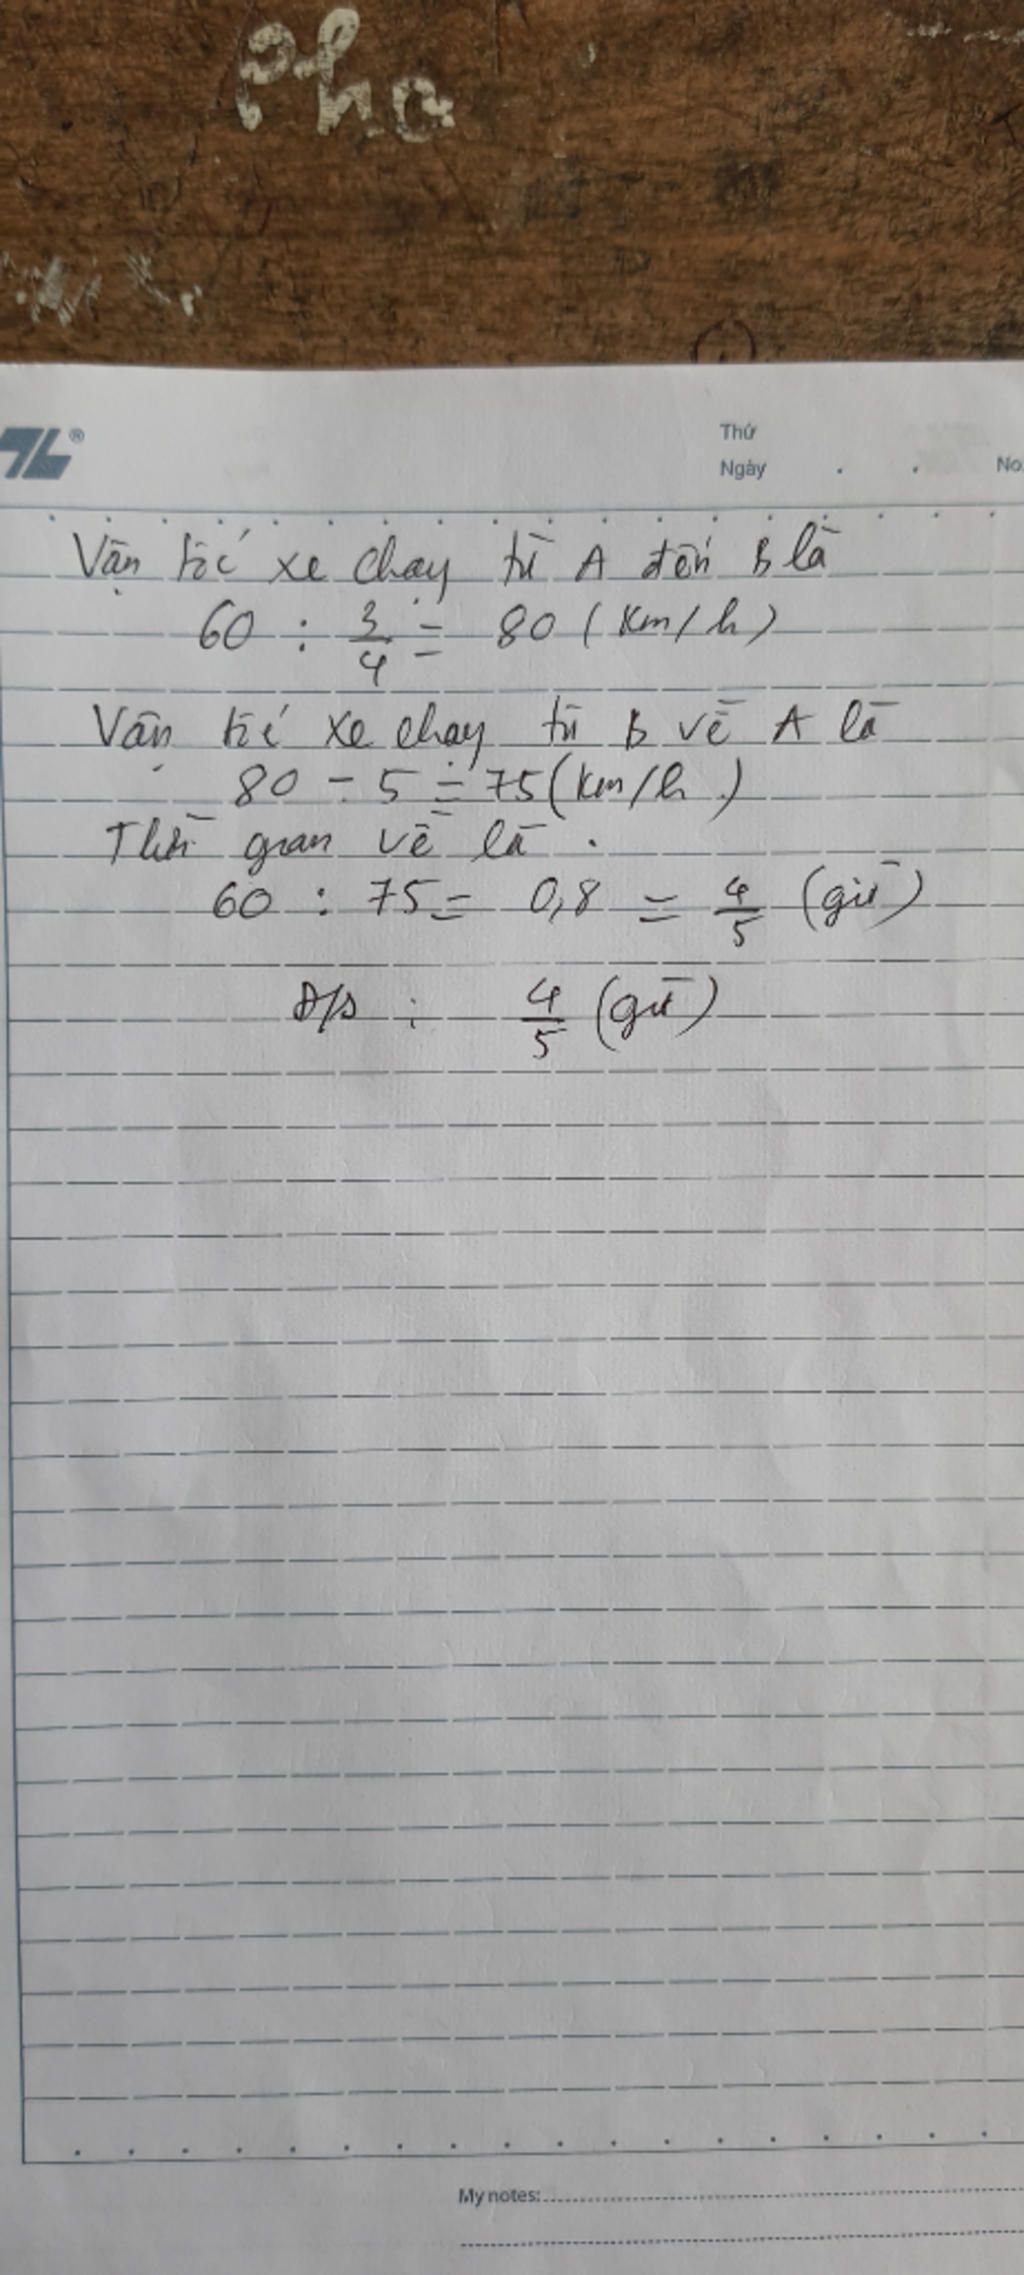 Pho
TL®
Thứ
Ngày . . No.
Vận tốc xe chạy từ A đến B là
60 : 3/4 = 80 (Km/h)
Vận tốc xe chạy từ B về A là
80 - 5 = 75 (km/h)
Thời gian về là .
60 : 75 = 0,8 = 4/5 (giờ)
Đ/s : 4/5 (giờ)
My notes: